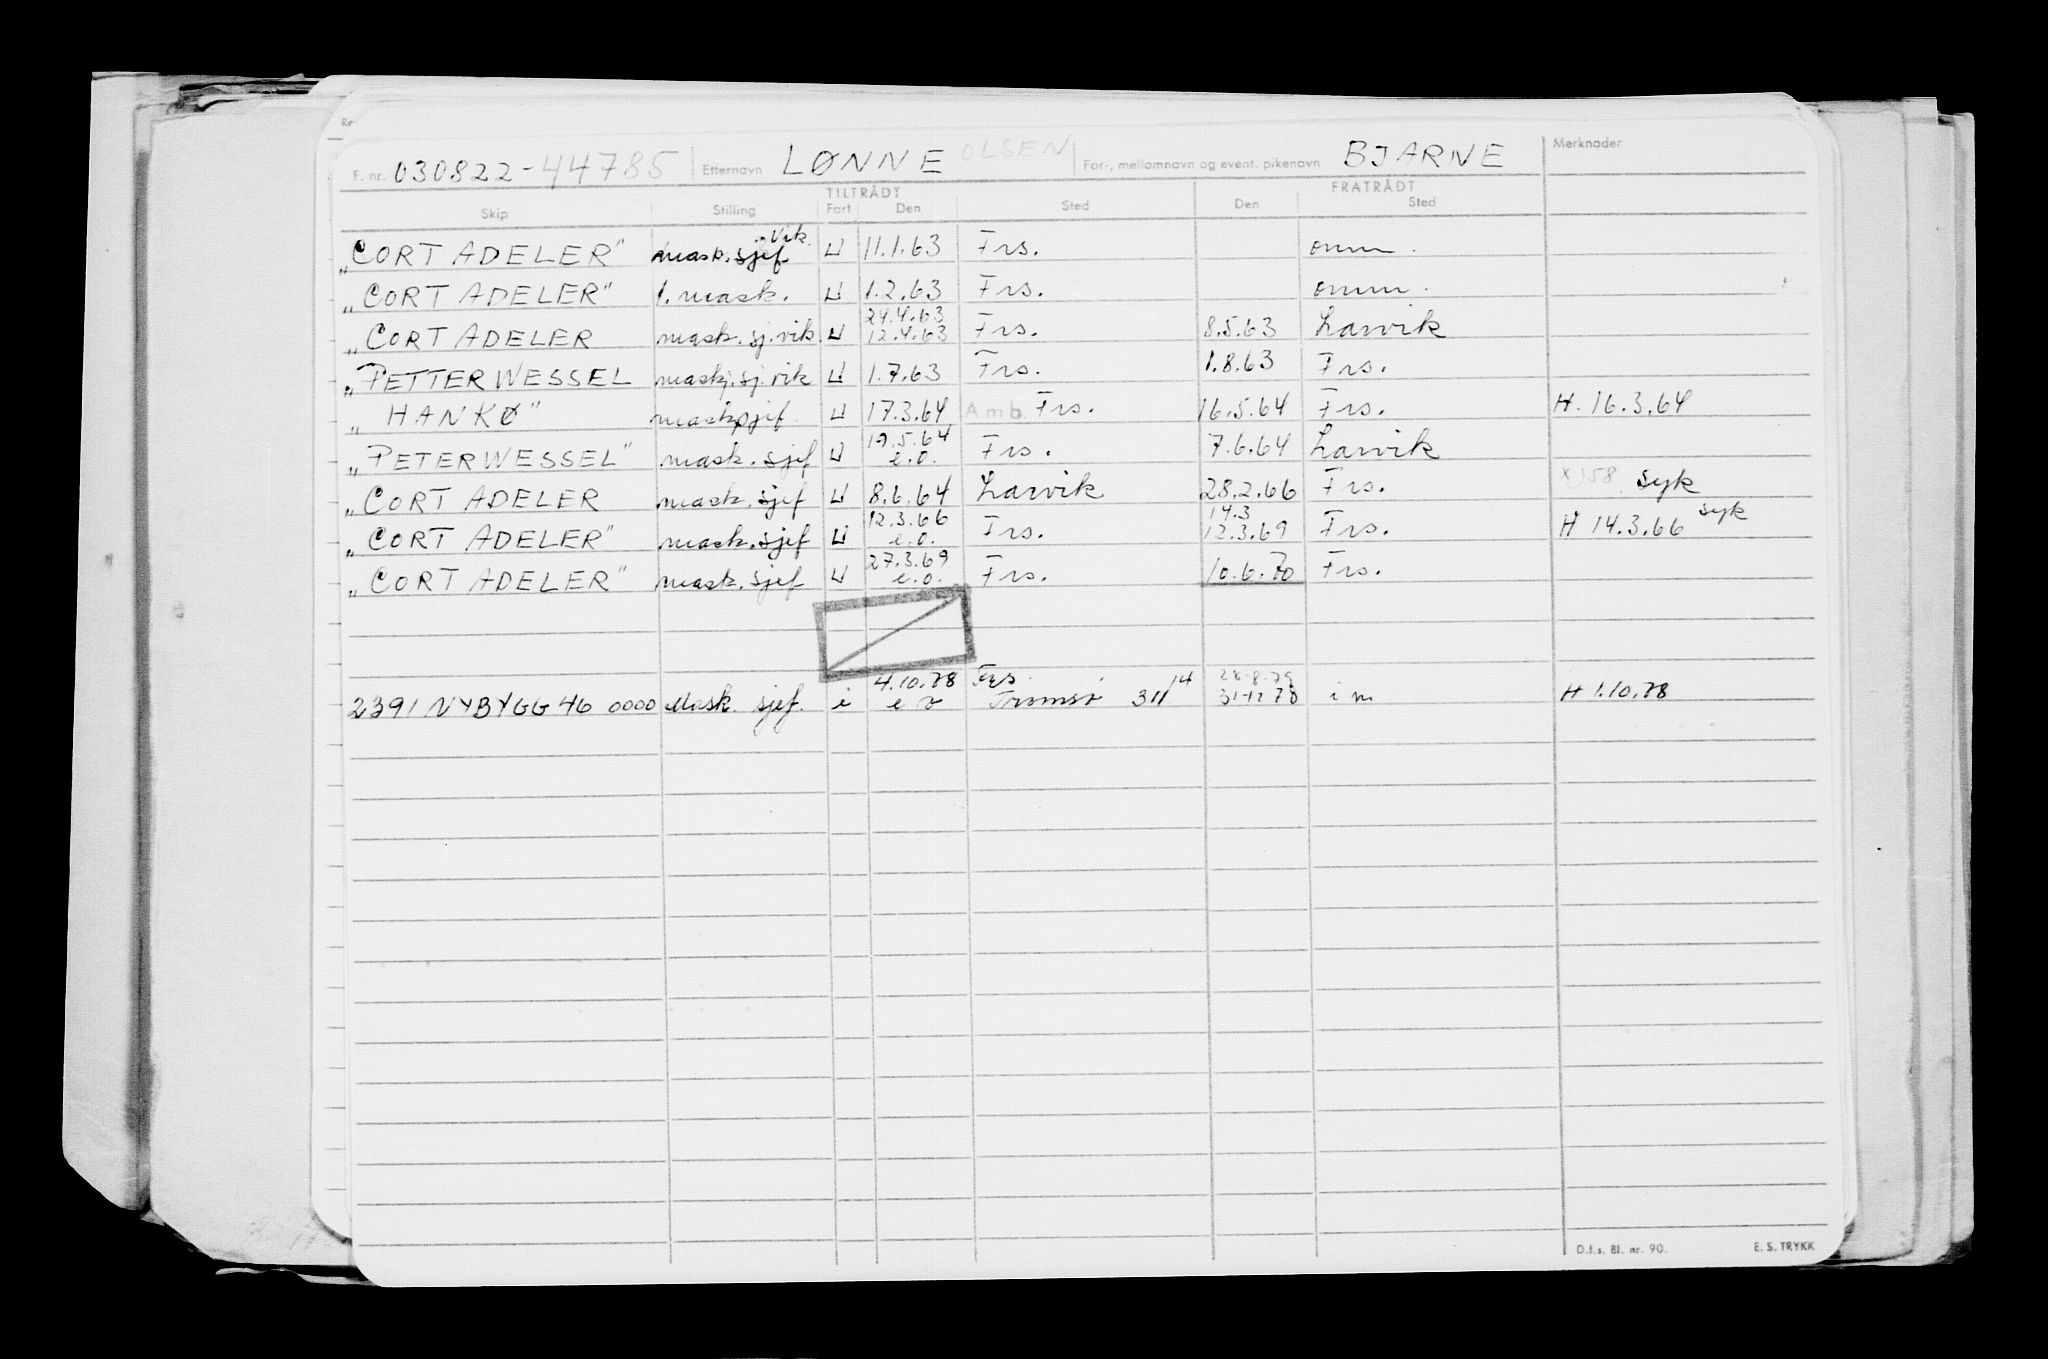 Re
F. nr. 030822-44785 Etternavn LØNNE OLSEN For-, mellomnavn og event. pikenavn BJARNE Merknader
TILTRÅDT FRATRÅDT
Skip Stilling Fart Den Sted Den Sted
„CORT ADELER" mask.sjef.vik. U 11.1.63 Frs. omm.
„CORT ADELER" 1. mask. U 1.2.63 Frs. omm.
24.4.63
„CORT ADELER mask.sj.vik. U 12.4.63 Frs. 8.5.63 Larvik
„PETTER WESSEL maskj.sj.vik U 1.7.63 Frs. 1.8.63 Frs.
„HANKØ" masksjef. U 17.3.64 Amb. Frs. 16.5.64 Frs. H. 16.3.64
19.5.64
„PETER WESSEL" mask.sjef U e.o. Frs. 7.6.64 Larvik
„CORT ADELER mask.sjef U 8.6.64 Larvik 28.2.66 Frs. x)58 syk
12.3.66 14.3 syk
„CORT ADELER" mask.sjef U e.o. Frs. 12.3.69 Frs. H 14.3.66
27.3.69
„CORT ADELER" mask.sjef U e.o. Frs. 10.6.70 Frs.
4.10.78 Frs. 14 28-8-79
2391 NYBYGG 46 0000 Mask. sjef. i e o Tromsø 311 31-12 78 i m H 1.10.78
D.f.s. Bl. nr. 90. E. S. TRYKK